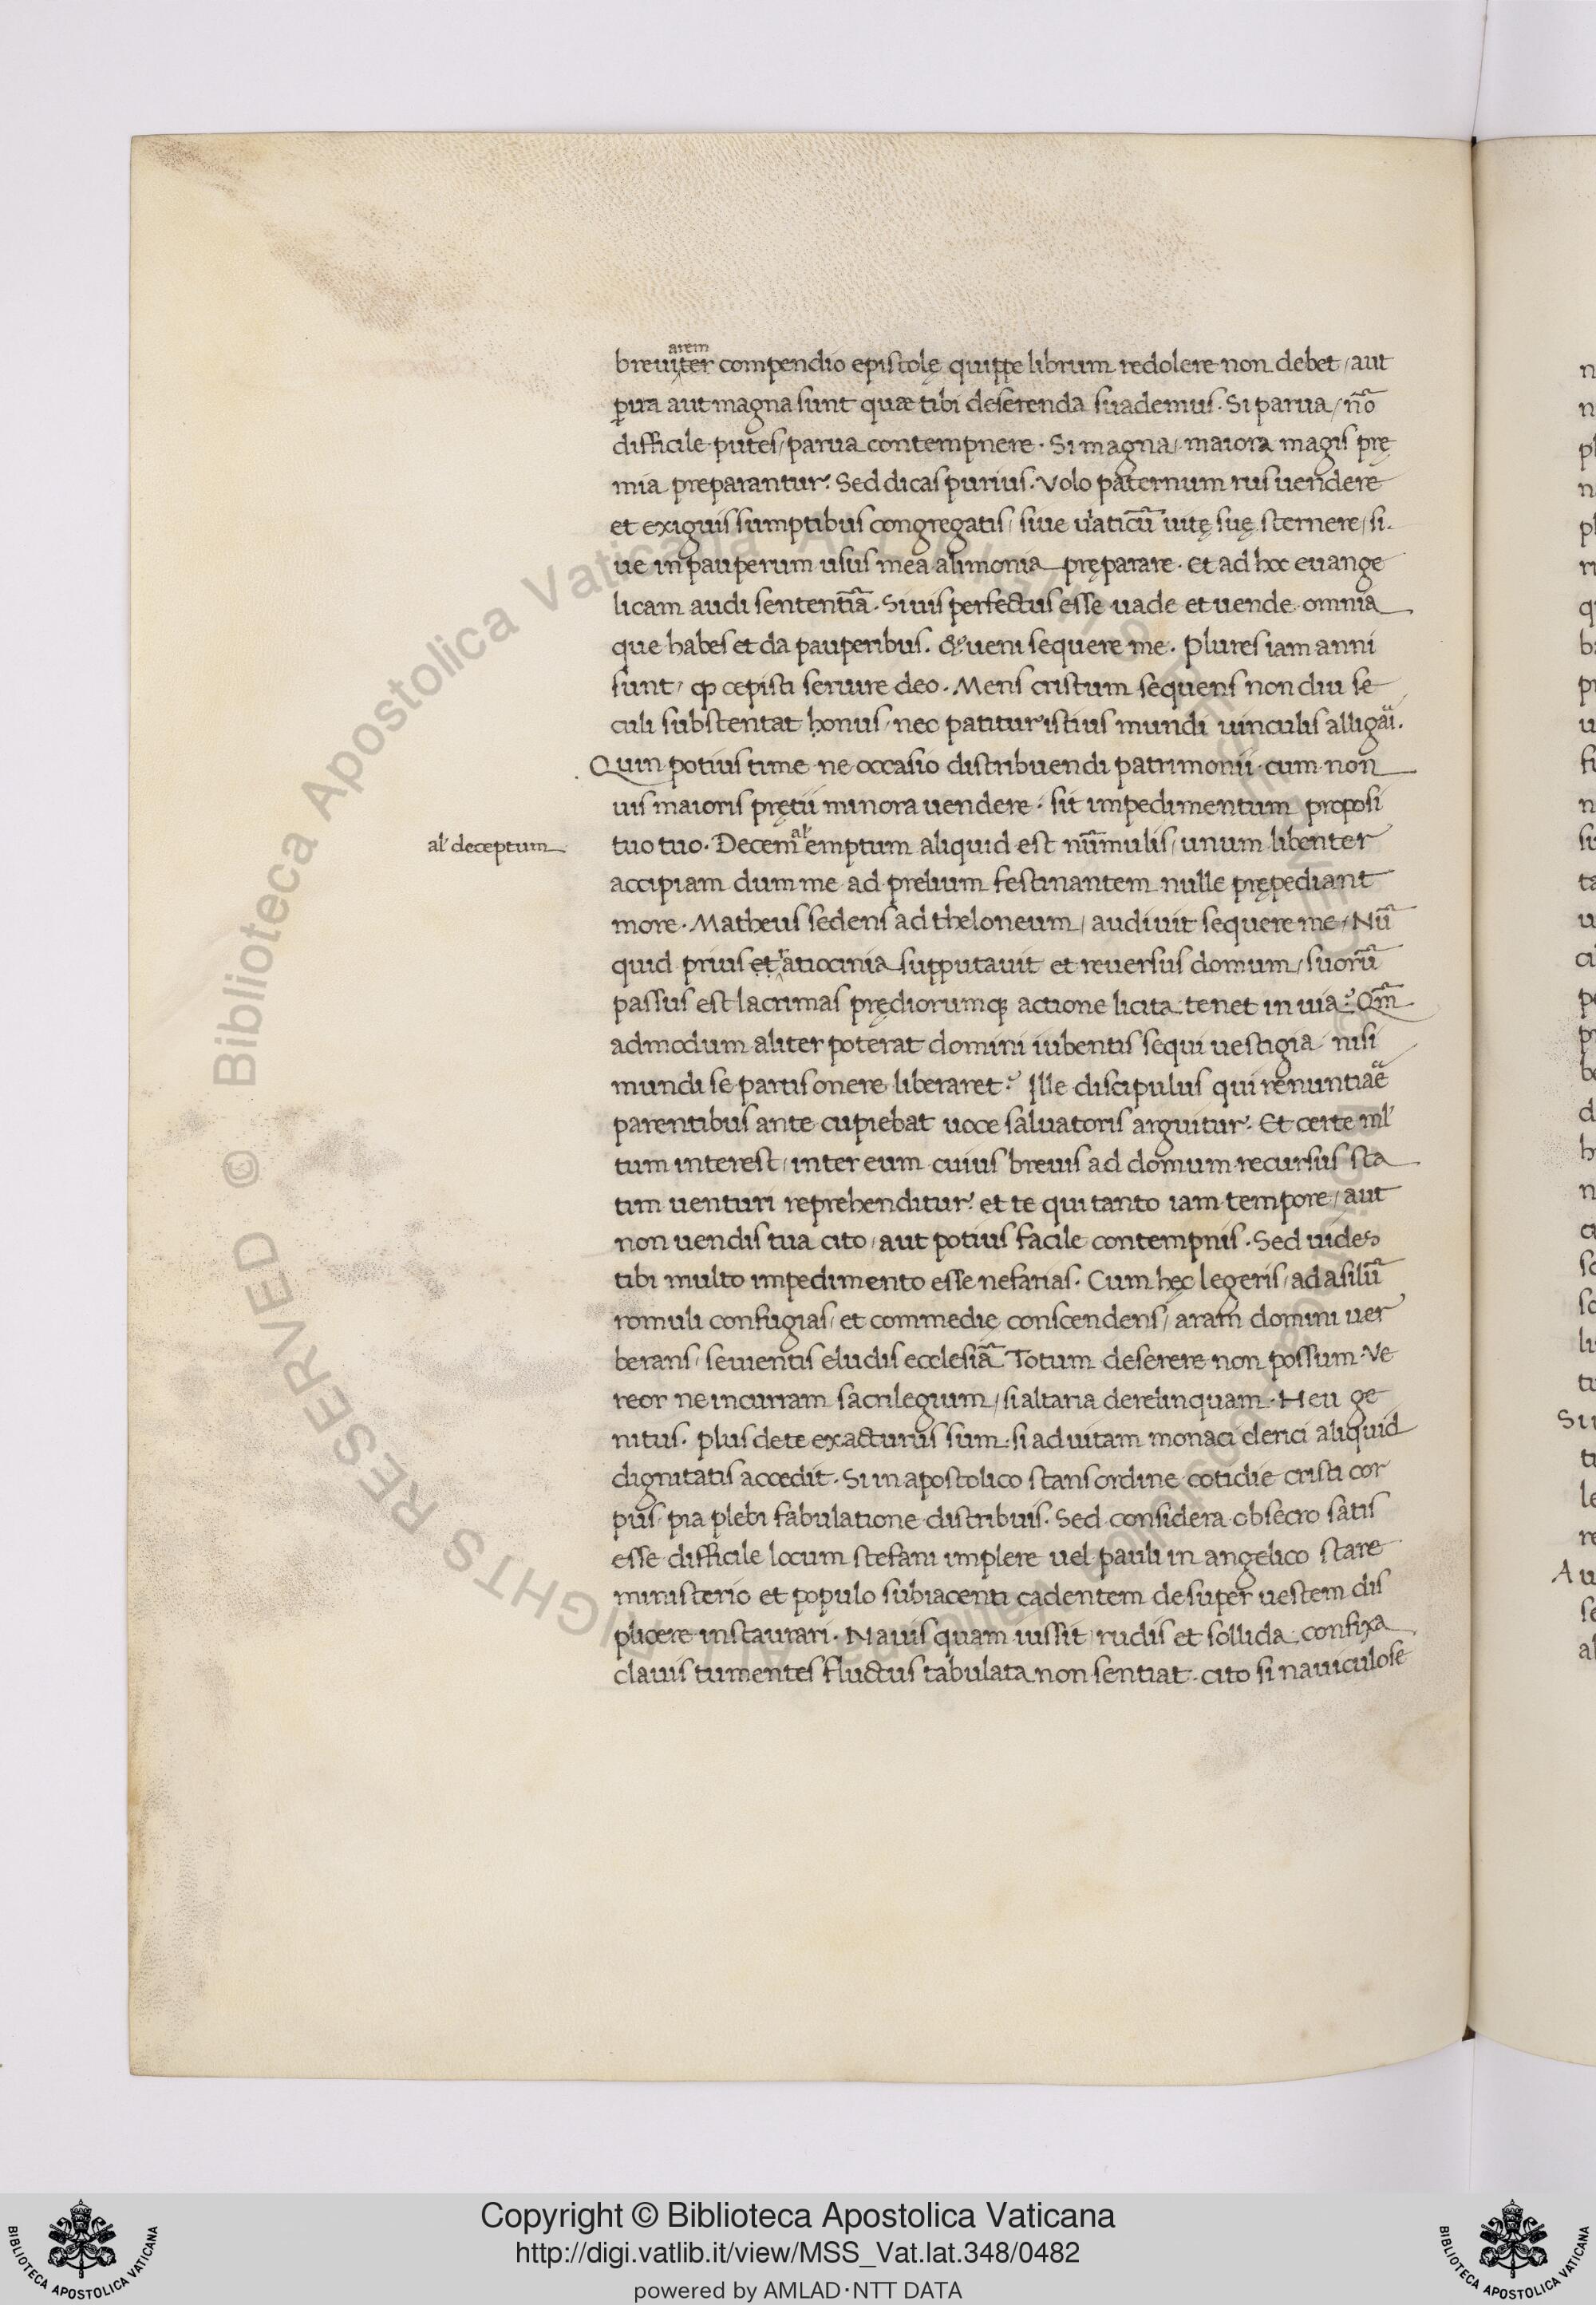 arem
breuiter compendio epistolę quippe librum redolere non debet / aut
ꝑua aut magna sunt quæ tibi deserenda suademus. Si parua / nõ
difficile putes / parua contempnere. Si magna / maiora magis prę
mia preparantur. Sed dicas purius. Volo paternum rus uendere
et exiguis sumptibus congregatis / siue uiaticũ uitę suę sternere / si.
ue in pauperum usus mea alimonia pręparare. et ad hoc euange
licam audi sententiã. Si uis perfectus esse uade et uende omnia
que habes et da pauperibus. & ueni sequere me. Plures iam anni
sunt / ꝙ cepisti seruire deo. Mens cristum sequens non diu se
culi substentat honus / nec patitur istius mundi uinculis alligãi.
Quin potius time ne occasio distribuendi patrimonii cum non
uis maioris prętii minora uendere. sit impedimentum proposi
al' deceptum
tuo tuo. Decem al' emptum aliquid est nũmulis / unum libenter
accipiam dum me ad prelium festinantem nulle prępediant
more. Matheus sedens ad theloneum / audiuit sequere me. Nũ
quid prius et ratiocinia supputauit et reuersus domum / suorũ
passus est lacrimas prędiorumq; actione licita tenet in uia? Qm̃
admodum aliter poterat domini iubentis sequi uestigia nisi
mundi se partis onere liberaret? Ille discipulus qui renuntiãe
parentibus ante cupiebat uoce saluatoris arguitur. Et certe ml'
tum interest / inter eum cuius breuis ad domum recursus sta
tim uenturi reprehenditur. et te qui tanto iam tempore / aut
non uendis tua cito / aut potius facile contempnis. Sed uides
tibi multo impedimento esse nefarias. Cum hęc legeris / ad asilũ
romuli confugias / et commedię conscendens / aram domini uer
berans / seuientis eludis ecclesiã. Totum deserere non possum. Ve
reor ne incurram sacrilegium / si altaria derelinquam. Heu ge
nitus. plus de te exacturus sum. si ad uitam monaci clerici aliquid
dignitatis accedit. Si in apostolico stans ordine cotidie cristi cor
pus / pia plebi fabulatione distribuis. Sed considera obsecro satis
esse difficile locum stefani implere uel pauli in angelico stare
ministerio et populo subiacenti cadentem desuper uestem dis
plicere instaurari. Nauis quam iussit / rudis et sollida confixa
clauis tumentes fluctus tabulata non sentiat. cito si nauiculose
Copyright © Biblioteca Apostolica Vaticana
http://digi.vatlib.it/view/MSS_Vat.lat.348/0482
powered by AMLAD·NTT DATA